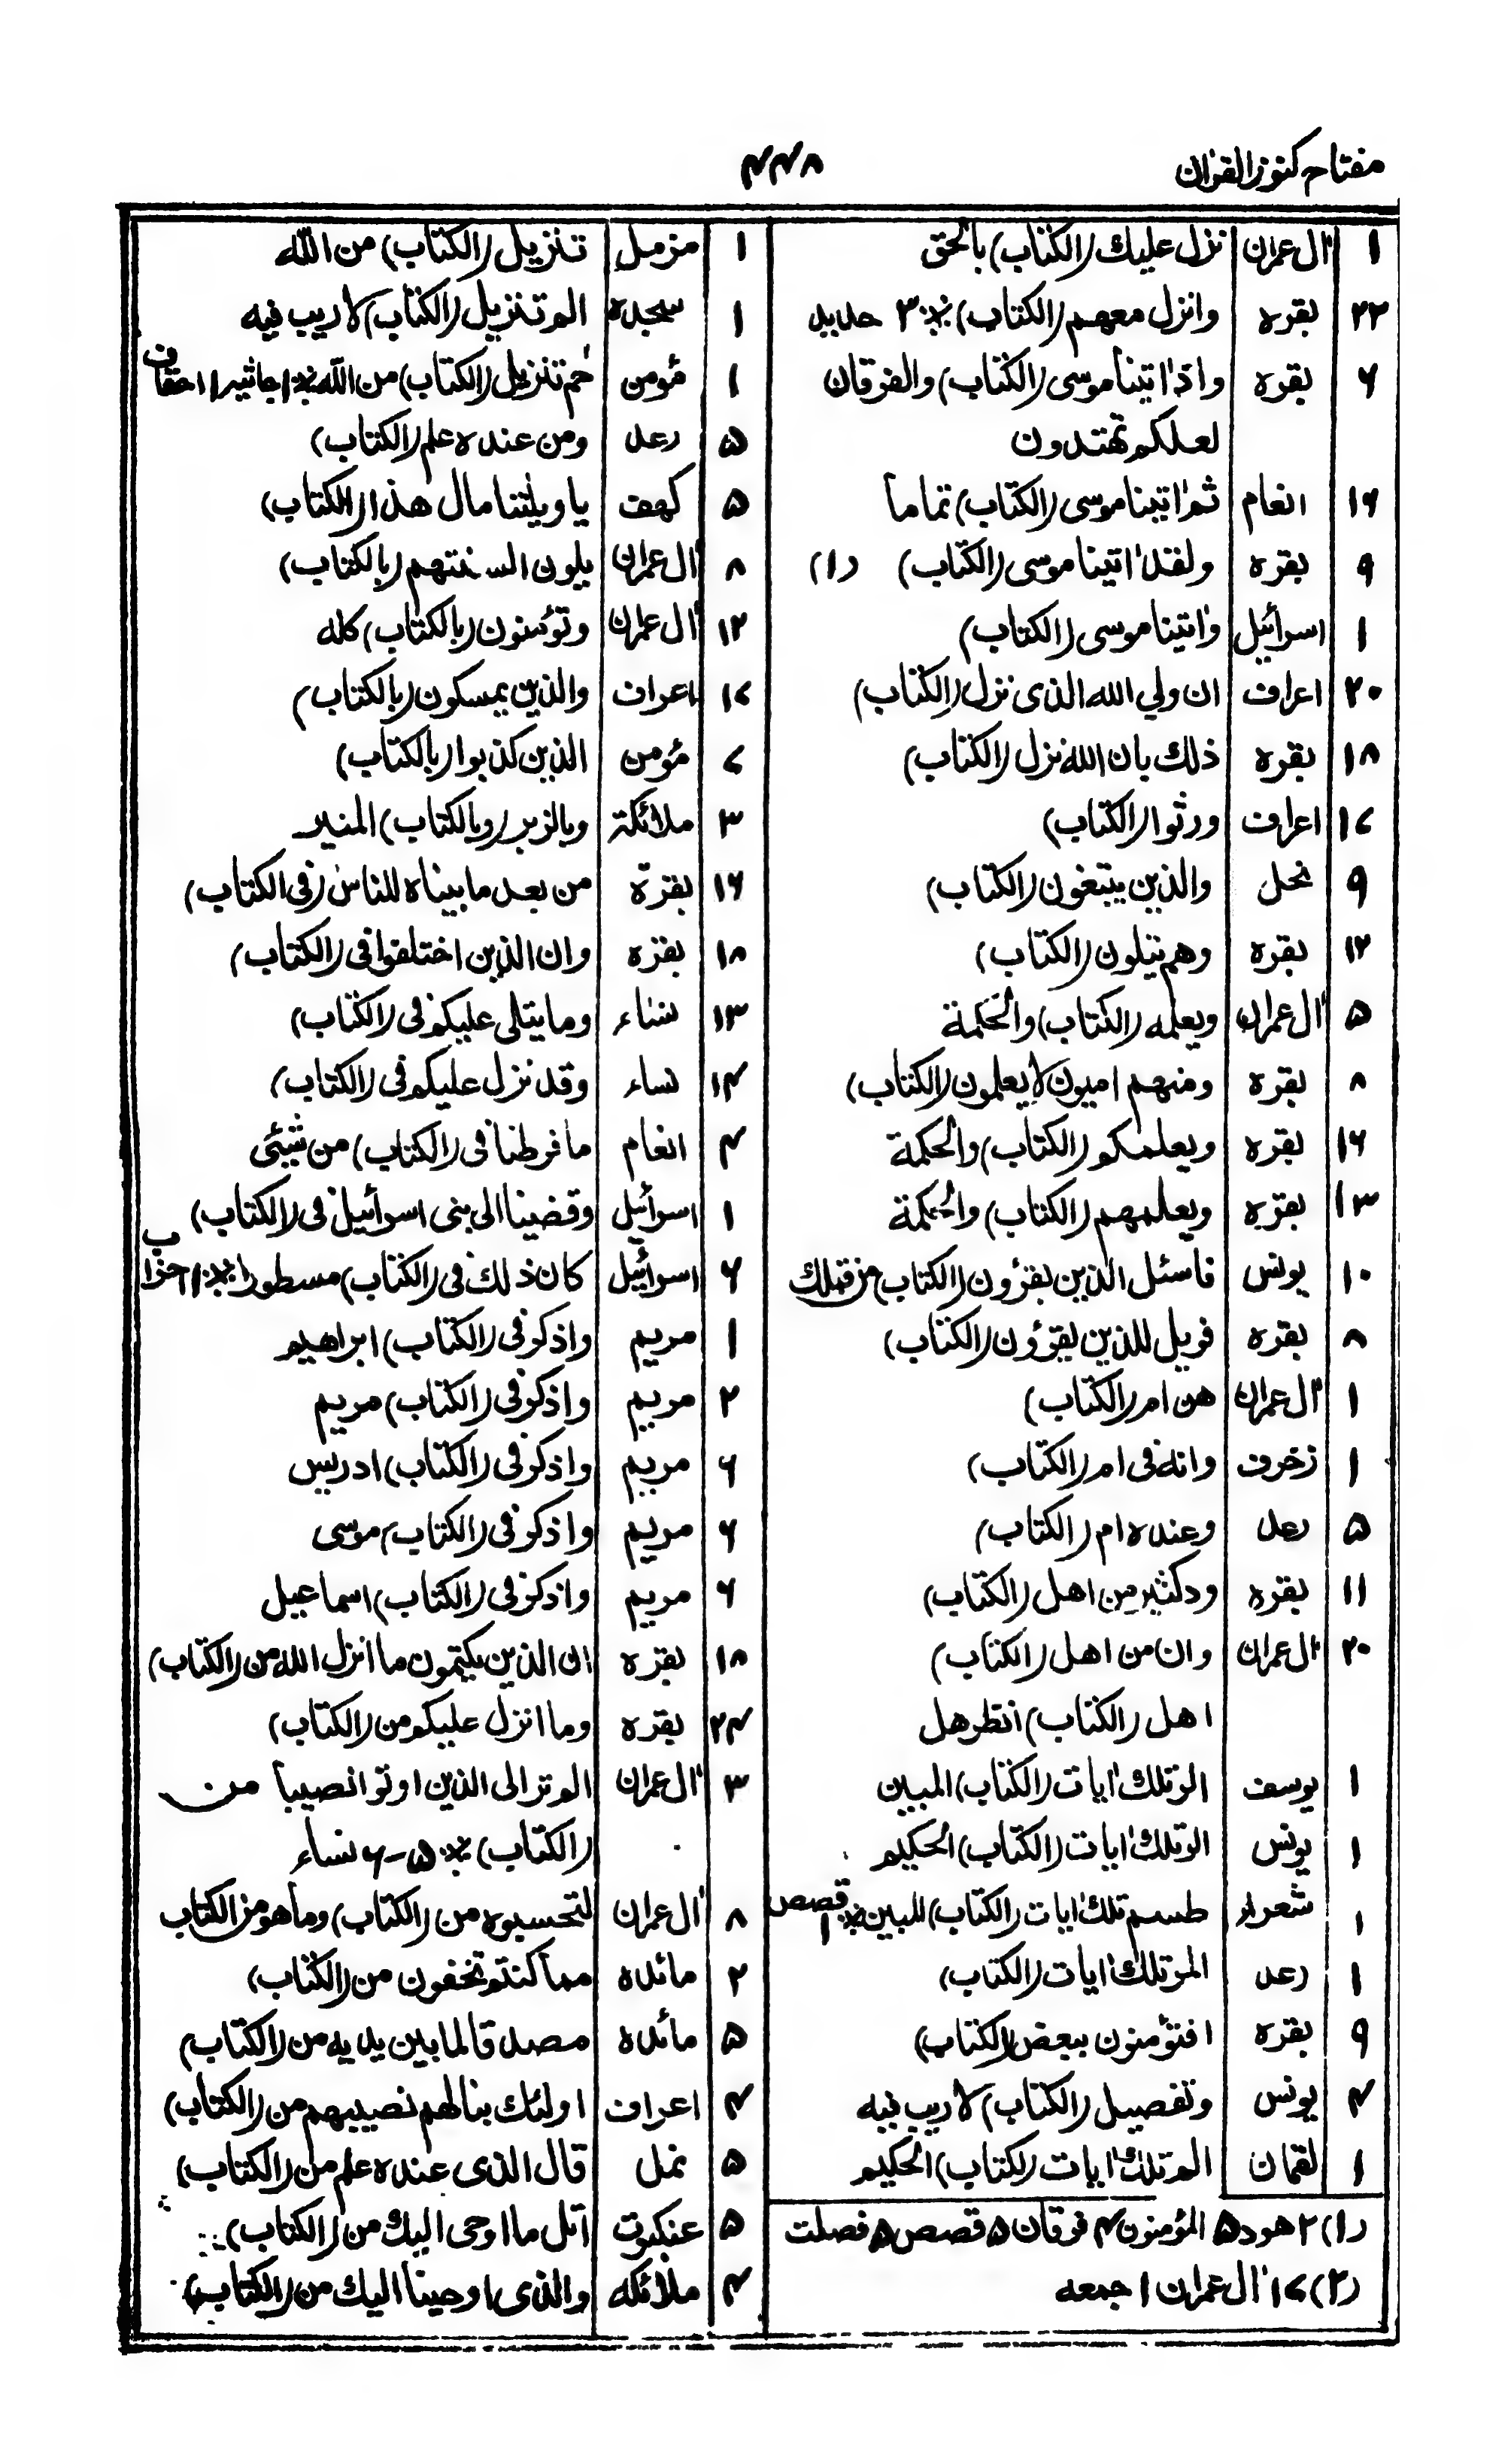 مفتاح كنوز القرآن
۴۴۸
۱ آل عمران نزل عليك (الكتاب) بالحق
۲۲ بقره وانزل معهم (الكتاب) ※ ۳ حديد
۶ بقره واذ اٰتينا موسى (الكتاب) والفرقان
لعلكم تهتدون
۱۶ انعام ثم اٰتينا موسى (الكتاب) تماما
۹ بقره ولقد اٰتينا موسى (الكتاب) (۱)
۱ اسرائيل واٰتينا موسى (الكتاب)
۲۰ اعراف ان ولي الله الذى نزل (الكتاب)
۱۸ بقره ذلك بان الله نزل (الكتاب)
۱۷ اعراف ورثوا (الكتاب)
۹ نحل والذين يبتغون (الكتاب)
۱۲ بقره وهم يتلون (الكتاب)
۵ آل عمران ويعلمه (الكتاب) والحكمة
۸ بقره ومنهم اميون لا يعلمون (الكتاب)
۱۶ بقره ويعلمكم (الكتاب) والحكمة
۱۳ بقره ويعلمهم (الكتاب) والحكمة
۱۰ يونس فاسئل الذين يقرؤن (الكتاب) من قبلك
۸ بقره فويل للذين يقرؤن (الكتاب)
۱ آل عمران هن ام (الكتاب)
۱ زخرف وانه فى ام (الكتاب)
۵ رعد وعنده ام (الكتاب)
۱۱ بقره ود كثير من اهل (الكتاب)
۲۰ آل عمران وان من اهل (الكتاب)
اهل (الكتاب) انظر هل
۱ يوسف الر تلك اٰيات (الكتاب) المبين
۱ يونس الر تلك اٰيات (الكتاب) الحكيم
۱ شعراء طسم تلك اٰيات (الكتاب) المبين ※ ۱ قصص
۱ رعد المر تلك اٰيات (الكتاب)
۹ بقره افتؤمنون ببعض (الكتاب)
۴ يونس وتفصيل (الكتاب) لا ريب فيه
۱ لقمان الم تلك اٰيات (الكتاب) الحكيم
(۱) ۲ هود ۵ المؤمنون ۴ فرقان ۵ قصص ۵ فصلت
(۲) ۱۷ اٰل عمران ۱ جمعه
۱ مزمل تنزيل (الكتاب) من اللّٰه
۱ سجده الم تنزيل (الكتاب) لا ريب فيه
۱ مؤمن حٰم تنزيل (الكتاب) من اللّٰه ※ ۱ جاثيه ۱ احقاف
۵ رعد ومن عنده علم (الكتاب)
۵ كهف يا ويلتنا مال هذا (الكتاب)
۸ آل عمران يلون السنتهم (بالكتاب)
۱۲ آل عمران وتؤمنون (بالكتاب) كله
۱۷ اعراف والذين يمسكون (بالكتاب)
۷ مؤمن الذين كذبوا (بالكتاب)
۳ ملائكة وبالزبر (وبالكتاب) المنير
۱۶ بقرة من بعد ما بيناه للناس (فى الكتاب)
۱۸ بقره وان الذين اختلفوا فى (الكتاب)
۱۳ نساء وما يتلى عليكم فى (الكتاب)
۱۴ نساء وقد نزل عليكم فى (الكتاب)
۴ انعام ما فرطنا فى (الكتاب) من شيئى
۱ اسرائيل وقضينا الى بنى اسرائيل فى (الكتاب)
۶ اسرائيل كان ذلك فى (الكتاب) مسطورا ※ ۱ احزاب
۱ مريم واذكر فى (الكتاب) ابراهيم
۲ مريم واذكر فى (الكتاب) مريم
۶ مريم واذكر فى (الكتاب) ادريس
۶ مريم واذكر فى (الكتاب) موسى
۶ مريم واذكر فى (الكتاب) اسماعيل
۱۸ بقره ان الذين يكتمون ما انزل الله من (الكتاب)
۲۴ بقره وما انزل عليكم من (الكتاب)
۳ آل عمران الم تر الى الذين اوتوا نصيبا من
(الكتاب) ※ ۵-۶ نساء
۸ آل عمران لتحسبوه من (الكتاب) وما هو من الكتاب
۲ مائده مما كنتم تخفون من (الكتاب)
۵ مائده مصدقا لما بين يديه من (الكتاب)
۴ اعراف اولئك ينالهم نصيبهم من (الكتاب)
۵ نمل قال الذى عنده علم من (الكتاب)
۵ عنكبوت اتل ما اوحى اليك من (الكتاب)
۴ ملائكه والذى اوحينا اليك من (الكتاب)